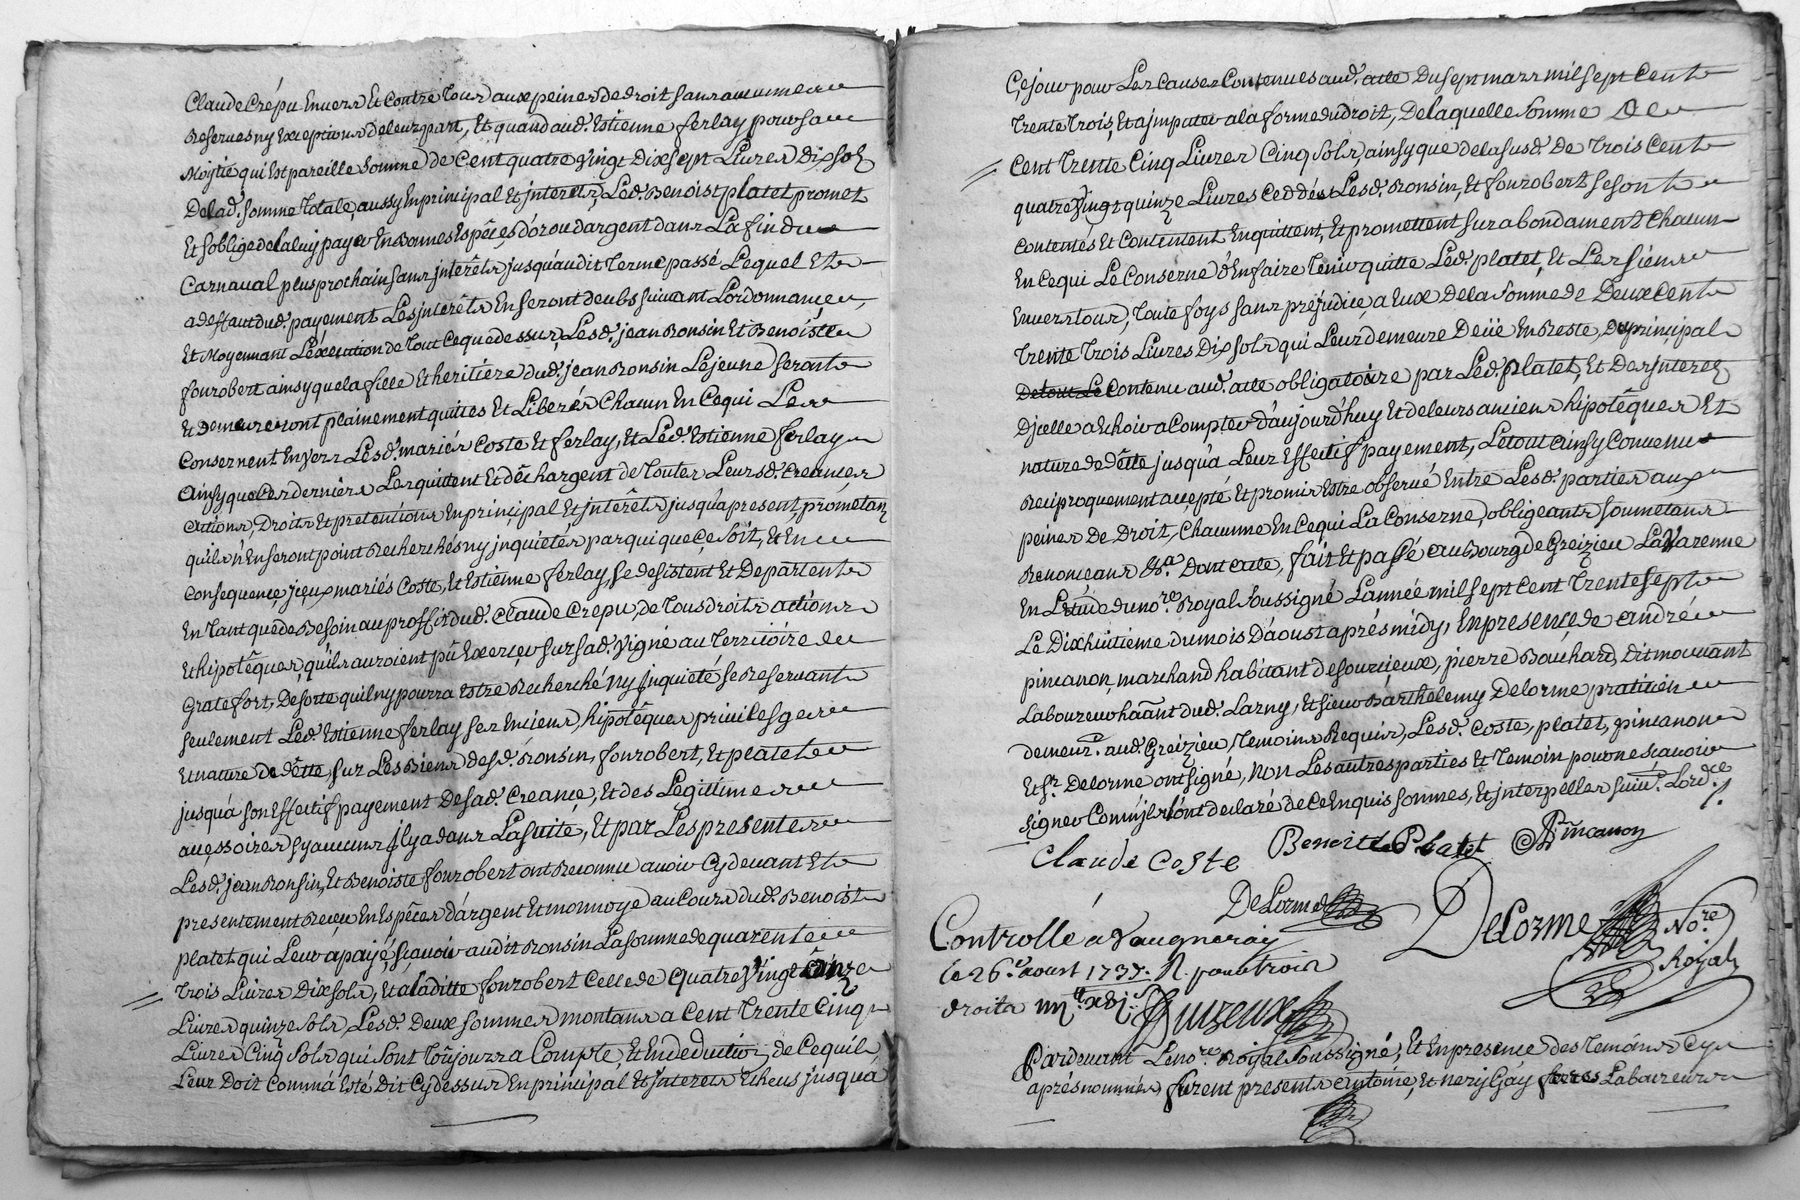 Claude Crépu Envers Et Contre tous aux peines de droit sans aucunnes
Reserves ny Exceptions de leur part, Et quand aud. Estienne ferlay pour sa
Moytié qui Est pareille Somme de Cent quatre vingt Dix sept Livres Dix sols
Delad. somme totale, aussy En principal Et jnterets, Led. Benoist platet promet
Et s'oblige de la luy payer En Bonnes Espêces d'or ou d'argent dans La fin du
Carnaval plus prochain sans jnterêts jusqu'audit terme passé Lequel Et
a deffaut dud. payement Les jnterêts En seront deubs suivant Lordonnance,
Et Moyennant L'éxecution de tout Ce que dessus, Lesd. jean Ronsin Et Benoiste
fonrobert ainsy que la fille Et heritiére dud. jean Ronsin Le jeune seront
Et Demeureront plainement quittes Et Liberés Chacun En Ce qui Les
Consernent Envers Lesd. mariés Coste Et ferlay, Et Led. Estienne ferlay
Ainsy que Ces derniers Les quittent Et déchargent de toutes Leursd. Creances
actions, Droits Et pretentions En principal Et jnterêts jusqu'a present, prometans
qu'ils n'En seront point Recherchés ny jnquiétés par qui que Ce soit, Et En
Consequence, jceux mariés Coste, Et Estienne ferlay, se desistent Et Departent
En tant que de Besoin au proffit dud. Claude Crepu, de tous droits actions
Et hipotêques, qu'ils auroient pû Exercer sur sad. vigne au territoire de
Gratefort, De sorte qu'il ny pourra Estre Recherché ny jnquiété se Reservant
seulement Led. Estienne ferlay ses Enciens, hipotêques privileges
Et nature de dêtte, sur Les Biens desd. Ronsin, fonrobert, Et platet
jusqu'a son Effectif payement de sad. Creance, Et des Legittimes
accessoires sy aucuns jl y a dans La suite, Et par Les presentes
Lesd. jean Ronsin, Et Benoiste fonrobert ont Reconnu avoir Cy devant Et
presentement Reçu En Espêces d'argent Et monnoye au Cours dud. Benoist
platet qui Leur a payé, sçavoir audit Ronsin La somme de quarente
trois Livres Dix sols, Et a laditte fonrobert Celle de Quatre vingt onze
Livres quinze sols, Lesd. Deux sommes montans a Cent trente Cinq
Livres Cinq sols qui sont toûjours a Compte, Et En deduction, de Ce quil
Leur Doit Comm'a Esté dit Cy dessus En principal Et jnterets Echeus jusqua
Ce jour pour Les Causes Contenues aud. acte Du sept mars mil sept Cent
trente trois, Et a jmputer a la forme du droit, De laquelle somme De
Cent trente Cinq Livres Cinq sols, ainsy que de la susd. De trois Cent
quatre vingt quinze Livres Ceddée Lesd. Ronsin, Et fonrobert se sont
contentés Et Contentent En quittent, Et promettent surabondament Chacun
En Ce qui Le Conserne d'En faire tenir quitte Led. platet, Et Les siens
Envers tous, toute foys sans préjudice, a Eux de la somme de Deux Cent
trente trois Livres Dix sols qui Leur demeure Deüe En Reste, du principal
De tout Le Contenu aud. acte obligatoire par Led. platet, Et Des jnterêts
Djcelle a Echoir a Compter d'aujourd'huy Et de leurs anciens hipotêques Et
nature de dêtte jusqu'a Leur Effectif payement, Le tout ainsy Convenu
Reciproquement accepté Et promis Estre observé Entre Lesd. parties aux
peines De Droit, Chacunne En Ce qui La Conserne, obligeants soumetans
Renonceans &a. Dont acte, fait Et passé au Bourg de Greizieu La Varenne
En L'etude du nore. Royal soussigné L'année mil sept Cent trente sept
Le Dixhuitième du mois D'aoust aprés midy, En presence de André
pincanon, marchand habitant de sourcieux, pierre Bouchard, Dit mouvant
Laboureur haânt dud. Larny, Et sieur Barthelemy Delorme praticien
demeurt. aud. Greizieu, temoins Requis, Lesd. Coste, platet, pincanon
Et sr. Delorme ont signé, Non Les autres parties Et temoin pour ne sçavoir
signer Comm'jls l'ont declaré de Ce Enquis sommés, Et jnterpellés suivt. Lordce.
Claude Coste Benoit Platet APincanon
DeLorme DeLorme Nore.
Royal
Controllé á Vaugneray
le 26e. aoust 1737. R. pour trois
droits
Pardevant Le nore. Royal soussigné, Et En presence des temoins Cy
aprés nommés, furent presents Antoine, Et nery Gay freres Laboureurs